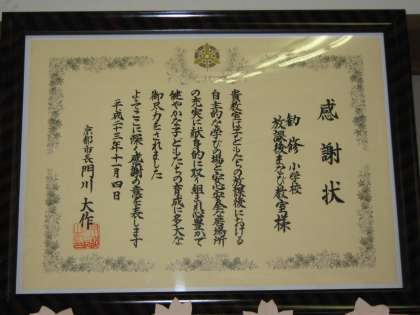 感謝状
釣修 小学校
放課後まなび教室様
貴教室は子どもたちの放課後における
自主的な学びの場と安心安全な居場所
の充実に献身的に取り組まれ心豊かで
健やかな子どもたちの育成に多大な
御尽力をされました
よってここに深く感謝の意を表します
平成二十三年十一月四日
京都市長 門川 大作